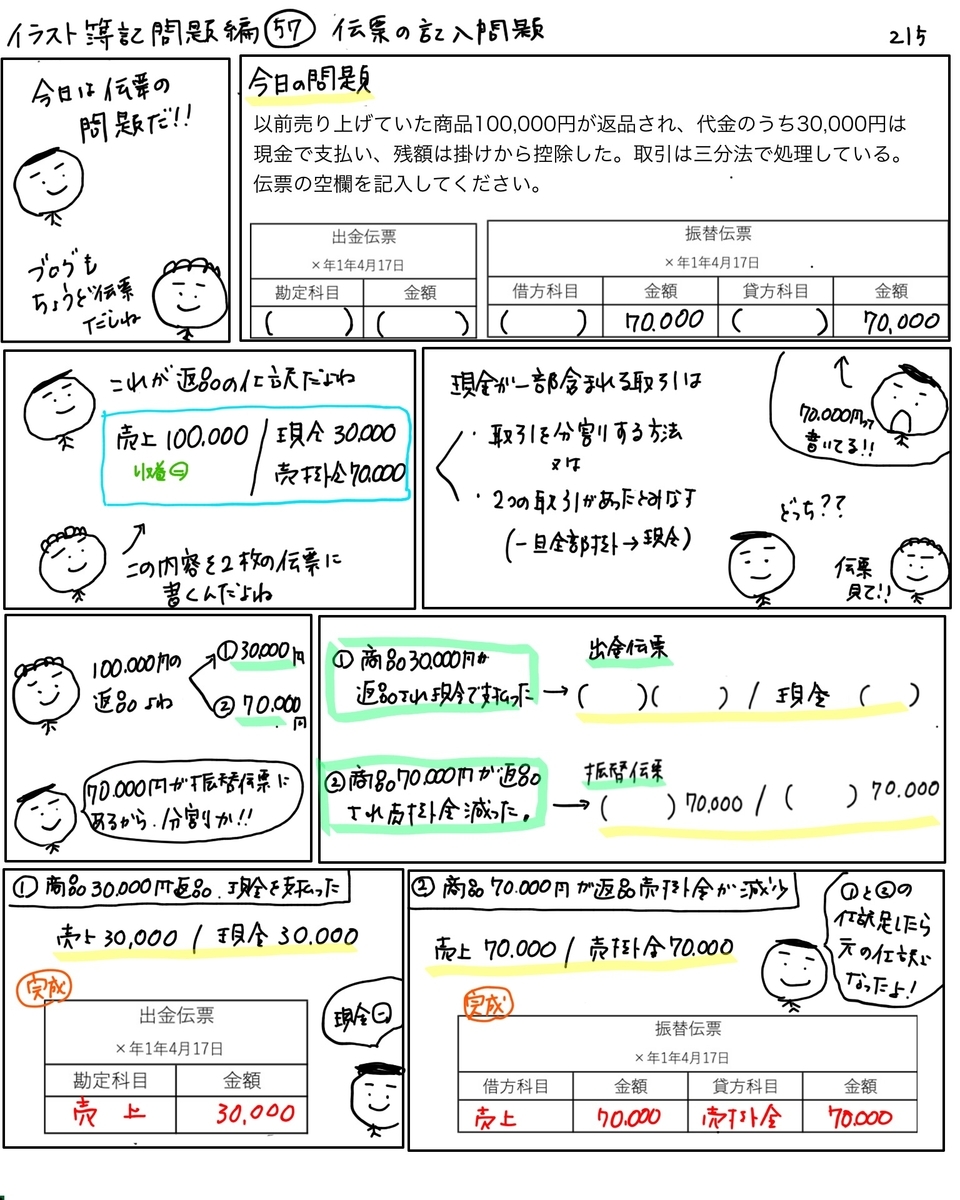 イラスト簿記問題編57 伝票の記入問題
215
今日は伝票の
問題だ!!
ブログも
ちょうど伝票
だしね
今日の問題
以前売り上げていた商品100,000円が返品され、代金のうち30,000円は
現金で支払い、残額は掛けから控除した。取引は三分法で処理している。
伝票の空欄を記入してください。
出金伝票
×年1年4月17日
勘定科目 金額
( ) ( )
振替伝票
×年1年4月17日
借方科目 金額 貸方科目 金額
( ) 70.000 ( ) 70,000
これが返品の仕訳だよね
売上 100,000 / 現金 30.000
収益㊀ 売掛金70.000
この内容を2枚の伝票に
書くんだよね
現金が一部含まれる取引は
・取引を分割する方法
又は
・2つの取引があったとみなす
(一旦全部掛→現金)
70.000円って
書いてる!!
どっち??
伝票
見て!!
100.000円の
返品よね
① 30.000円
② 70.000円
70.000円が振替伝票に
あるから、分割か!!
① 商品30.000円が
返品され現金で支払った
→ 出金伝票
( )( ) / 現金 ( )
② 商品70.000円が返品
され売掛金減った。
→ 振替伝票
( ) 70,000 / ( ) 70.000
① 商品30.000円返品、現金を支払った
売上 30,000 / 現金 30.000
完成
出金伝票
×年1年4月17日
勘定科目 金額
売上 30,000
現金㊀
② 商品 70.000円が返品売掛金が減少
売上 70.000 / 売掛金 70.000
①と②の
仕訳足したら
元の仕訳に
なったよ!
完成
振替伝票
×年1年4月17日
借方科目 金額 貸方科目 金額
売上 70.000 売掛金 70.000